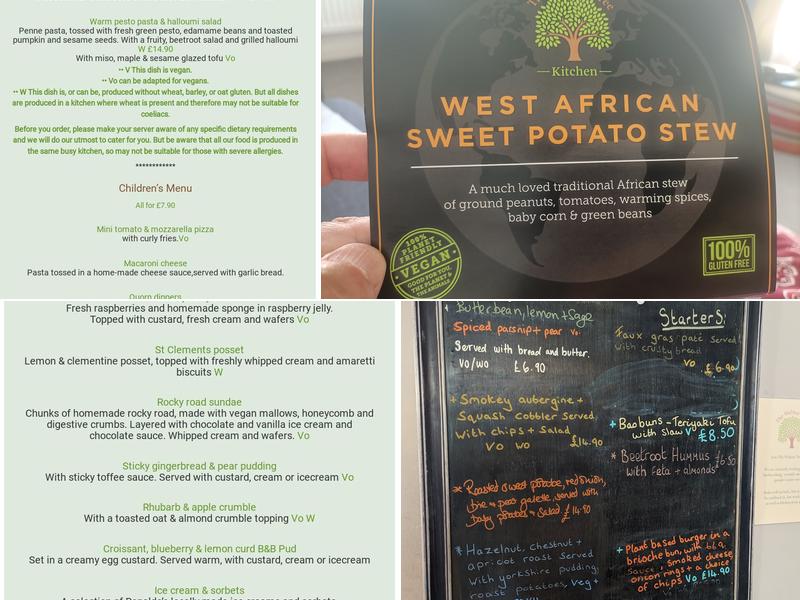 Warm pesto pasta & halloumi salad
Penne pasta, tossed with fresh green pesto, edamame beans and toasted
pumpkin and sesame seeds. With a fruity, beetroot salad and grilled halloumi
W £14.90
With miso, maple & sesame glazed tofu Vo
•• V This dish is vegan.
•• Vo can be adapted for vegans.
•• W This dish is, or can be, produced without wheat, barley, or oat gluten. But all dishes
are produced in a kitchen where wheat is present and therefore may not be suitable for
coeliacs.
Before you order, please make your server aware of any specific dietary requirements
and we will do our utmost to cater for you. But be aware that all our food is produced in
the same busy kitchen, so may not be suitable for those with severe allergies.
************
Children's Menu
All for £7.90
Mini tomato & mozzarella pizza
with curly fries.Vo
Macaroni cheese
Pasta tossed in a home-made cheese sauce,served with garlic bread.
Quorn dippers
Kitchen
WEST AFRICAN
SWEET POTATO STEW
A much loved traditional African stew
of ground peanuts, tomatoes, warming spices,
baby corn & green beans
100%
PLANET
FRIENDLY
VEGAN
GOOD FOR YOU,
THE PLANET &
THE ANIMALS
100%
GLUTEN FREE
Fresh raspberries and homemade sponge in raspberry jelly.
Topped with custard, fresh cream and wafers Vo
St Clements posset
Lemon & clementine posset, topped with freshly whipped cream and amaretti
biscuits W
Rocky road sundae
Chunks of homemade rocky road, made with vegan mallows, honeycomb and
digestive crumbs. Layered with chocolate and vanilla ice cream and
chocolate sauce. Whipped cream and wafers. Vo
Sticky gingerbread & pear pudding
With sticky toffee sauce. Served with custard, cream or icecream Vo
Rhubarb & apple crumble
With a toasted oat & almond crumble topping Vo W
Croissant, blueberry & lemon curd B&B Pud
Set in a creamy egg custard. Served warm, with custard, cream or icecream
Ice cream & sorbets
Butterbean, lemon + Sage
Spiced parsnip + pear Vo.
Served with bread and butter.
VO/WO £6.90
+ Smokey aubergine +
Squash cobbler served
with chips + Salad
VO WO £14.90
* Roasted sweet potatoe, red onion,
brie + pear galette, served with
baby potatoes + Salad. £14.90
* Hazelnut, chestnut +
apricot roast served
with yorkshire pudding,
roast potatoes, veg +
Starters:
Faux gras pate served
with crusty bread
VO £6.90
+ Baobuns - Teriyaki Tofu
with slaw V £8.50
* Beetroot Hummus £6.50
with feta + almonds
+ Plant based burger in a
brioche bun, with b.b.q.
sauce, smoked cheese,
onion rings + a choice
of chips Vo £14.90